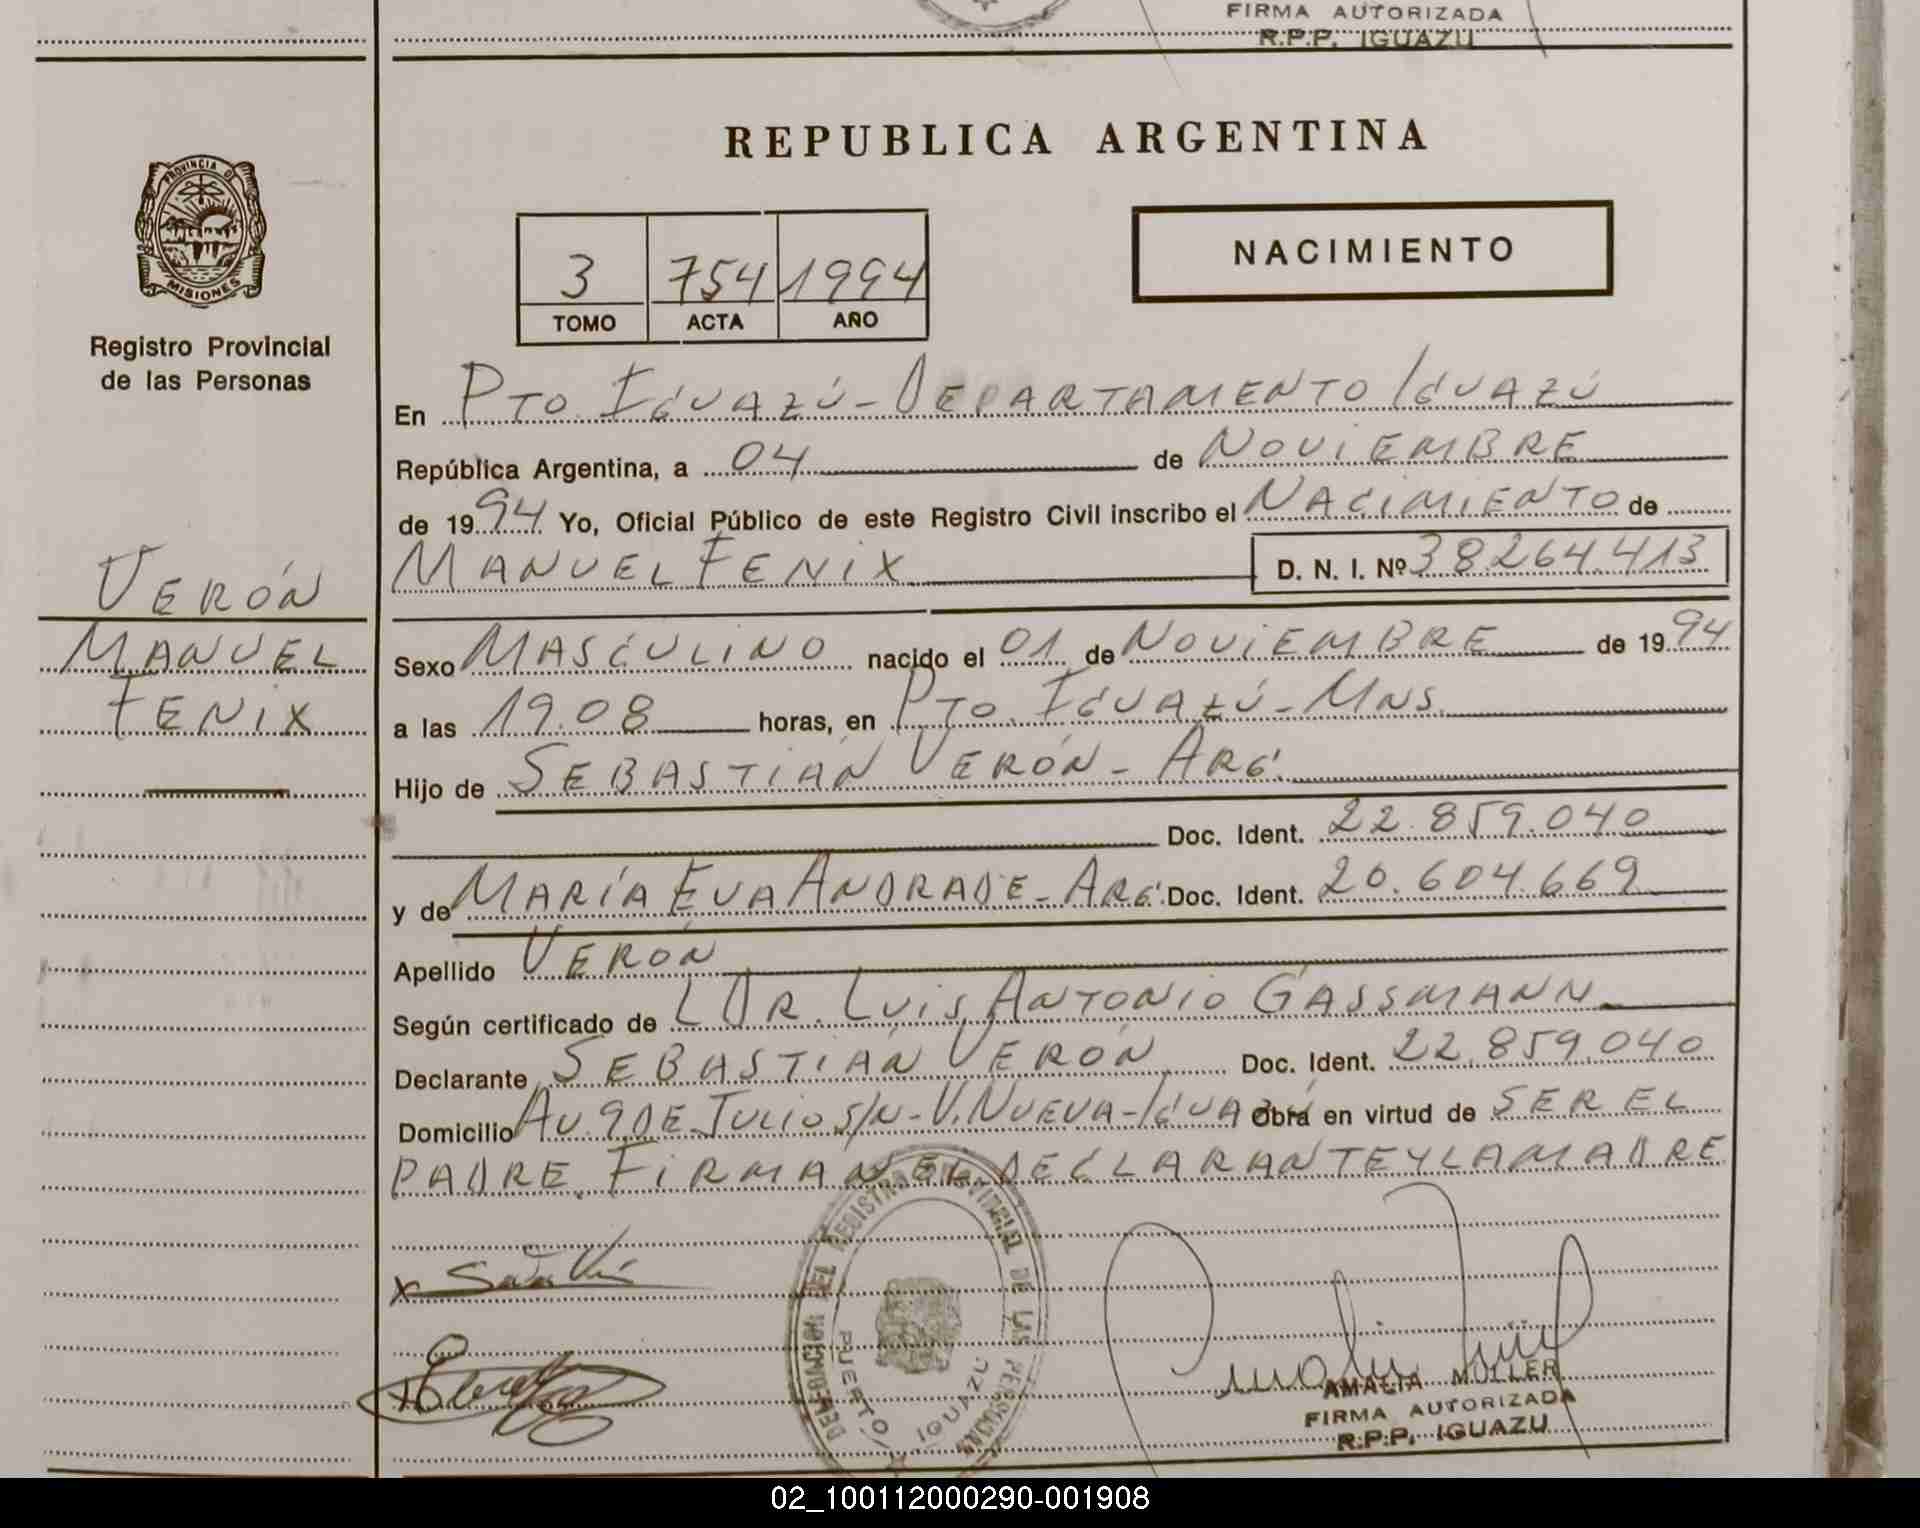 FIRMA AUTORIZADA
R.P.P. IGUAZU
REPUBLICA ARGENTINA
PROVINCIA D
MISIONES
Registro Provincial
de las Personas
3 754 1994
TOMO ACTA AÑO
NACIMIENTO
En PTO. IGUAZÚ - DEPARTAMENTO IGUAZÚ
República Argentina, a 04 de NOVIEMBRE
de 1994 Yo, Oficial Público de este Registro Civil inscribo el NACIMIENTO de
MANUEL FENIX D. N. I. Nº 38.264.413
VERÓN
MANUEL
FENIX
Sexo MASCULINO nacido el 01 de NOVIEMBRE de 1994
a las 19.08 horas, en PTO. IGUAZÚ - MNS.
Hijo de SEBASTIÁN VERÓN - ARG.
Doc. Ident. 22.859.040
y de MARÍA EVA ANDRADE - ARG. Doc. Ident. 20.604.669
Apellido VERÓN
Según certificado de DR. LUIS ANTONIO GASSMANN
Declarante SEBASTIÁN VERÓN Doc. Ident. 22.859.040
Domicilio AV. 9 DE JULIO S/N - V. NUEVA - IGUAZÚ Obra en virtud de SER EL
PADRE. FIRMAN EL DECLARANTE Y LA MADRE
DELEGACION DEL REGISTRO PROVINCIAL DE LAS PERSONAS
PUERTO IGUAZU
AMALIA MULLER
FIRMA AUTORIZADA
R.P.P. IGUAZU
02_100112000290-001908